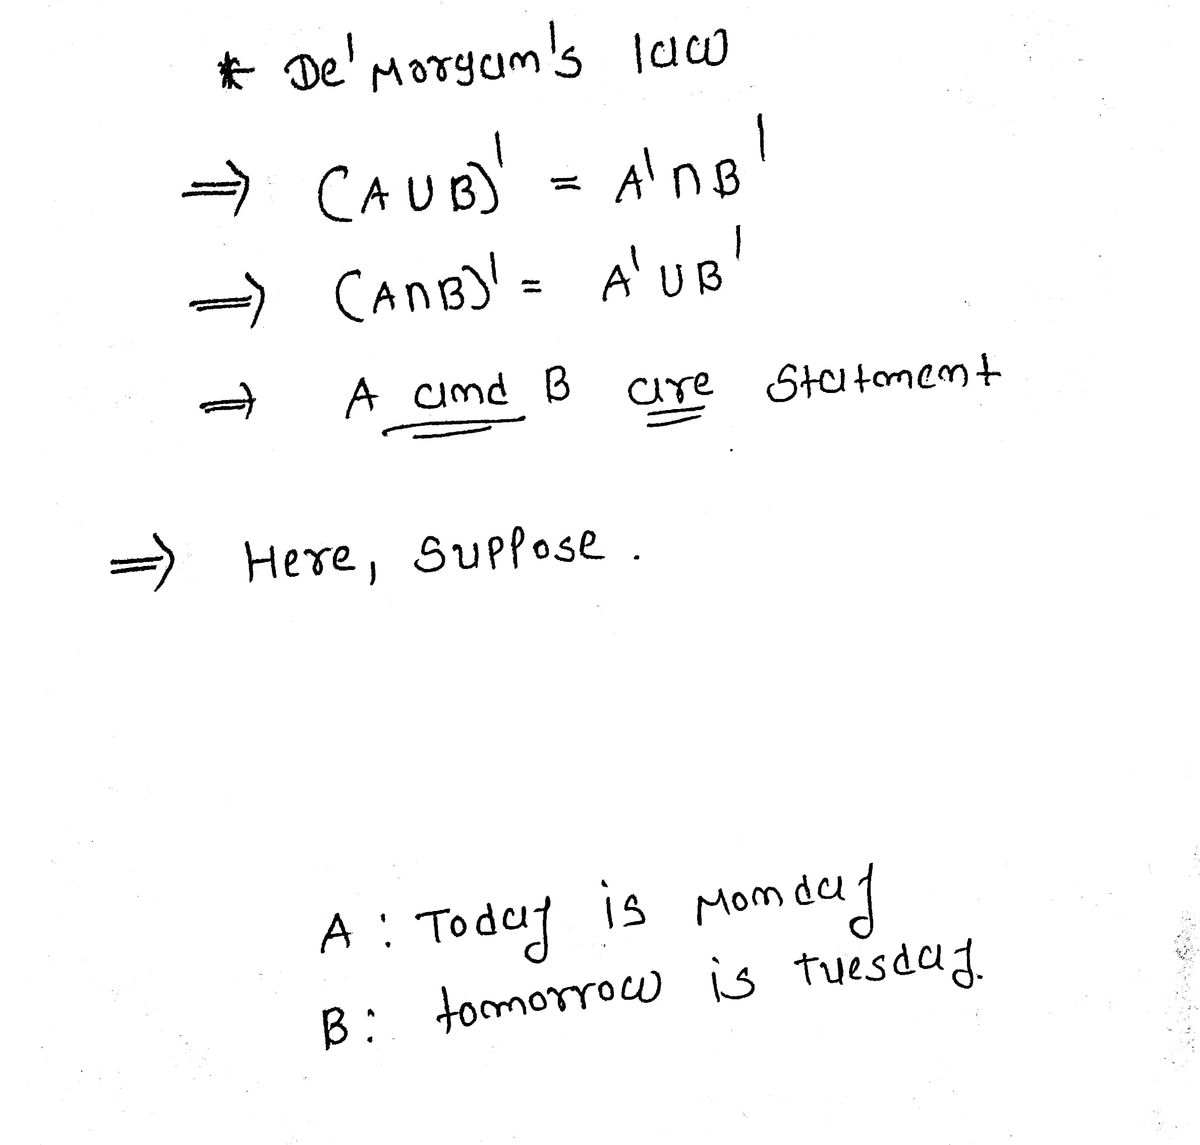 * De' Morgan's law
⇒ (A∪B)' = A'∩B'
⇒ (A∩B)' = A'∪B'
⇒ A and B are Statement
⇒ Here, Suppose.
A : Today is Monday
B : tomorrow is tuesday.